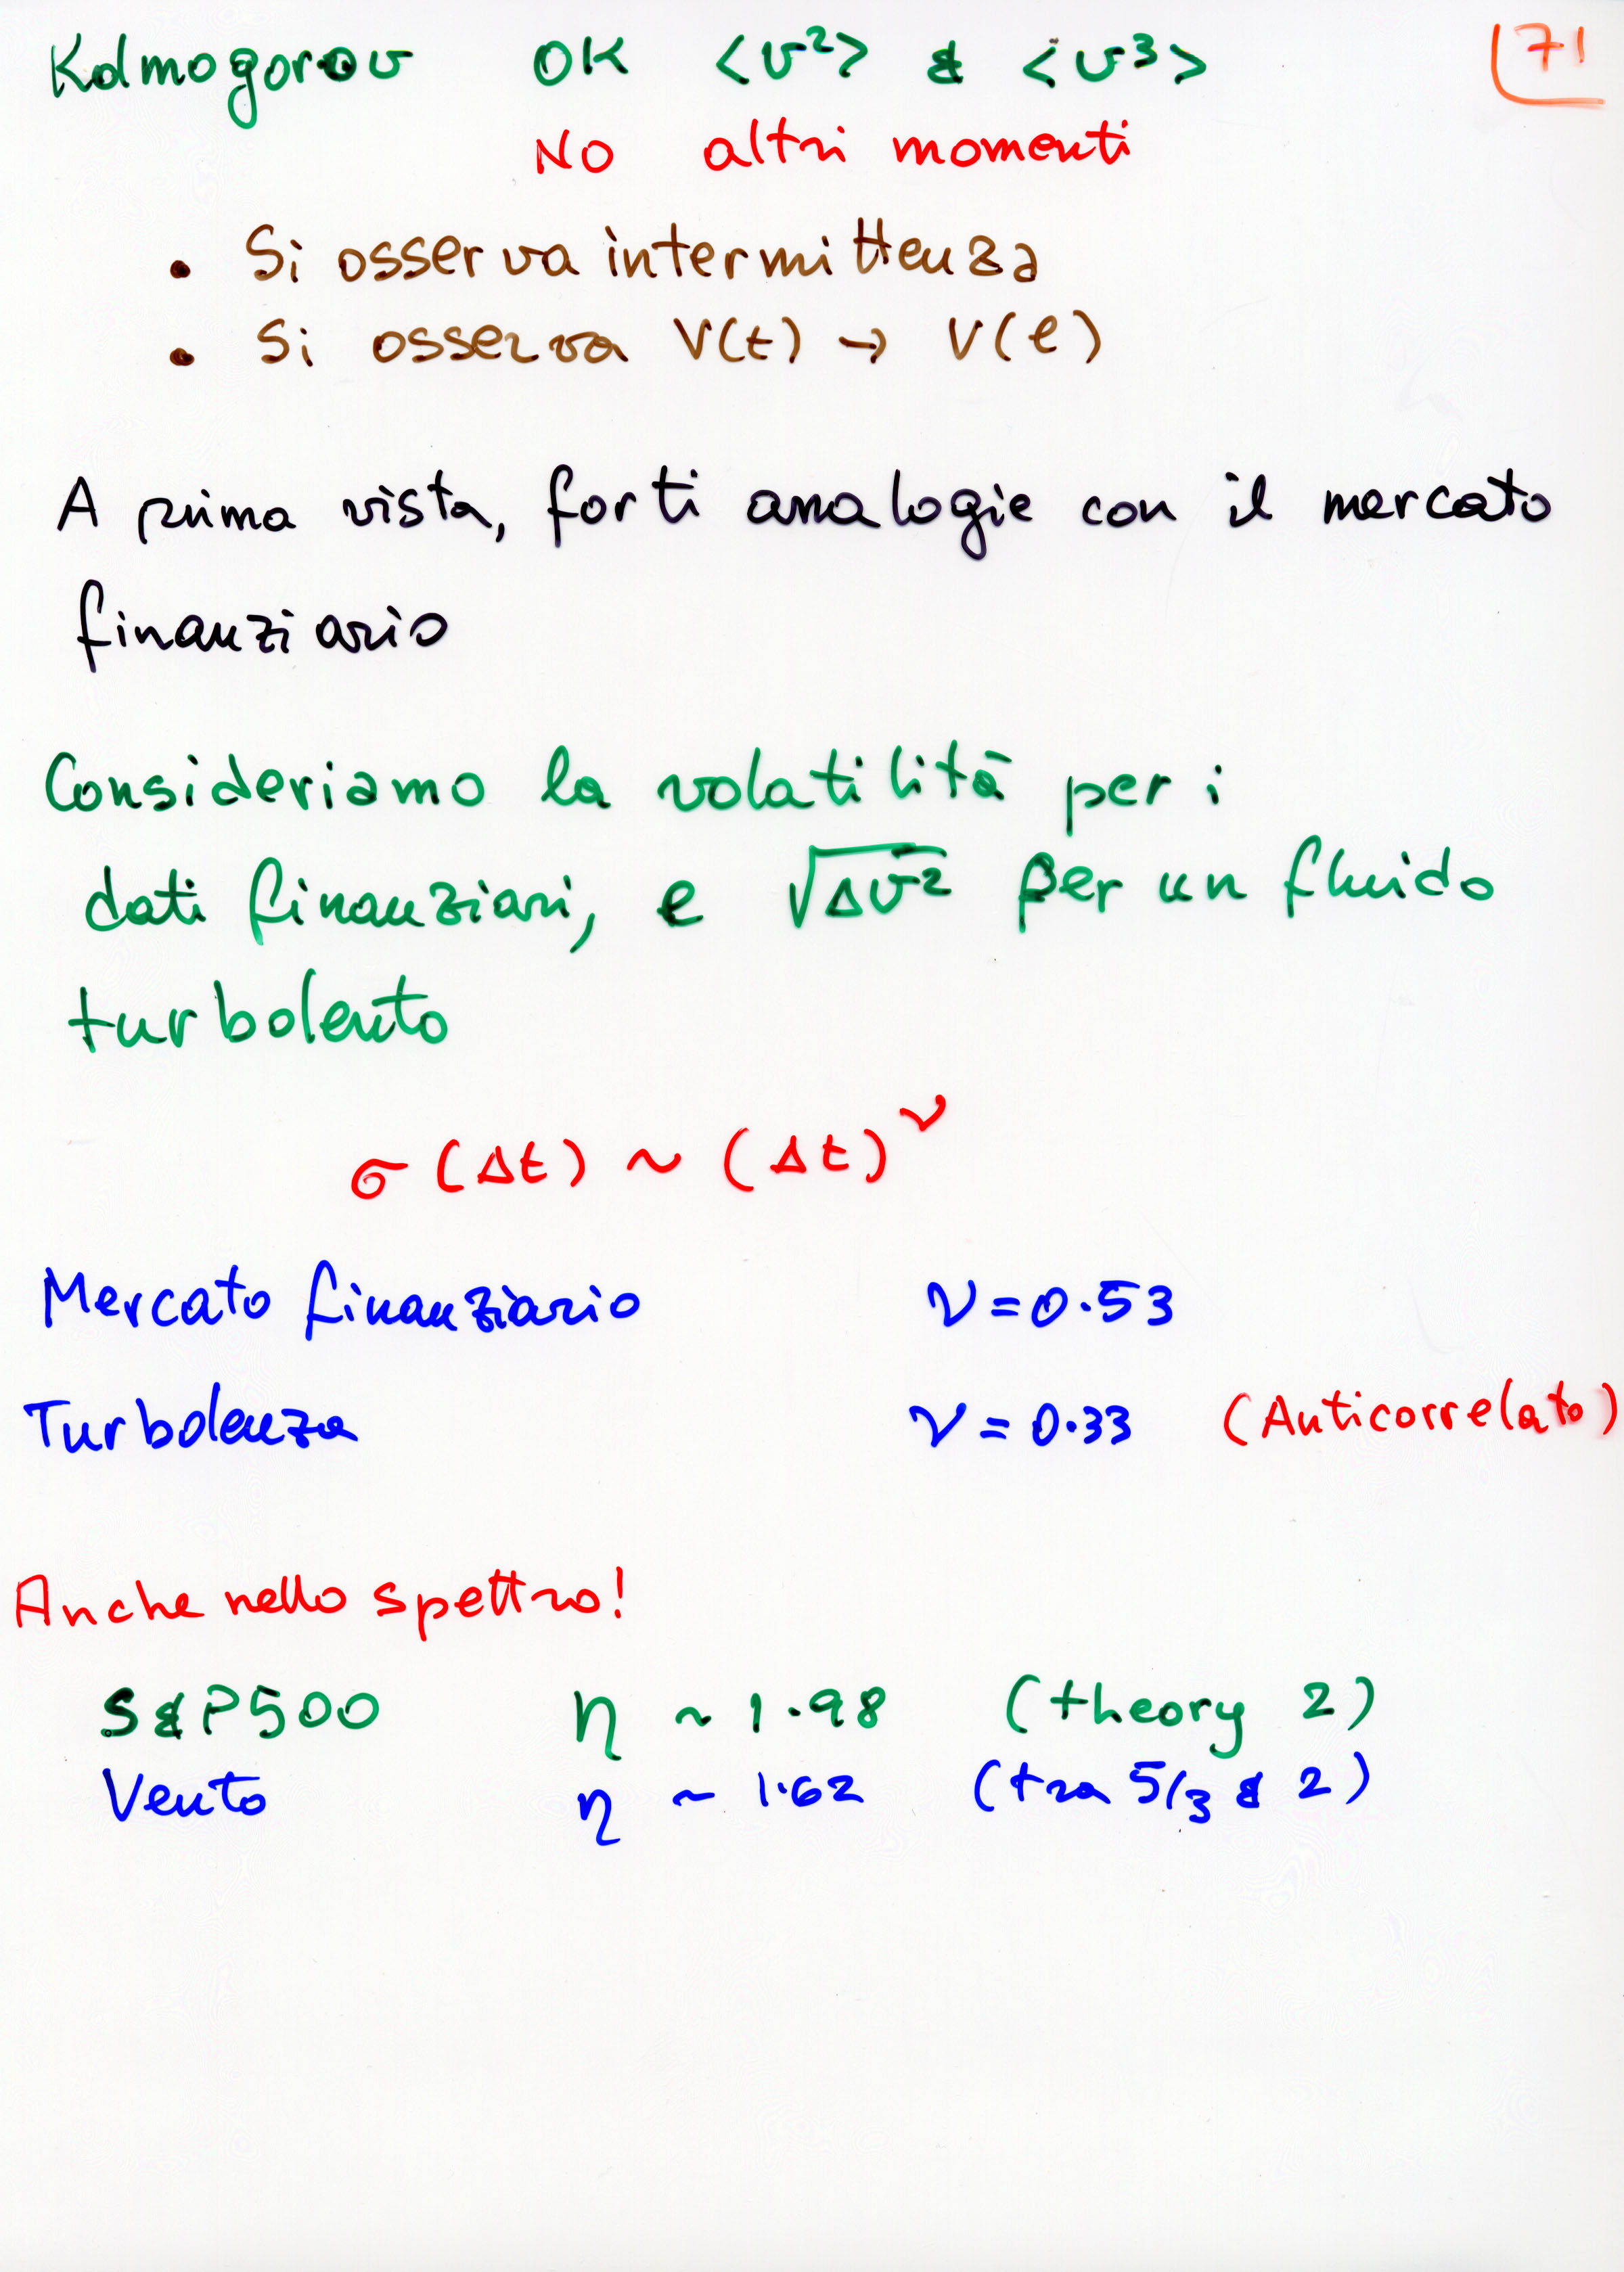 Kolmogorov OK <v²> & <v³> 71
No altri momenti
• Si osserva intermittenza
• Si osserva V(t) → V(l)
A prima vista, forti analogie con il mercato
finanziario
Consideriamo la volatilità per i
dati finanziari, e √Δv² per un fluido
turbolento
σ(Δt) ~ (Δt)^ν
Mercato finanziario ν=0.53
Turbolenza ν=0.33 (Anticorrelato)
Anche nello spettro!
S&P500 η ~ 1.98 (theory 2)
Vento η ~ 1.62 (tra 5/3 & 2)